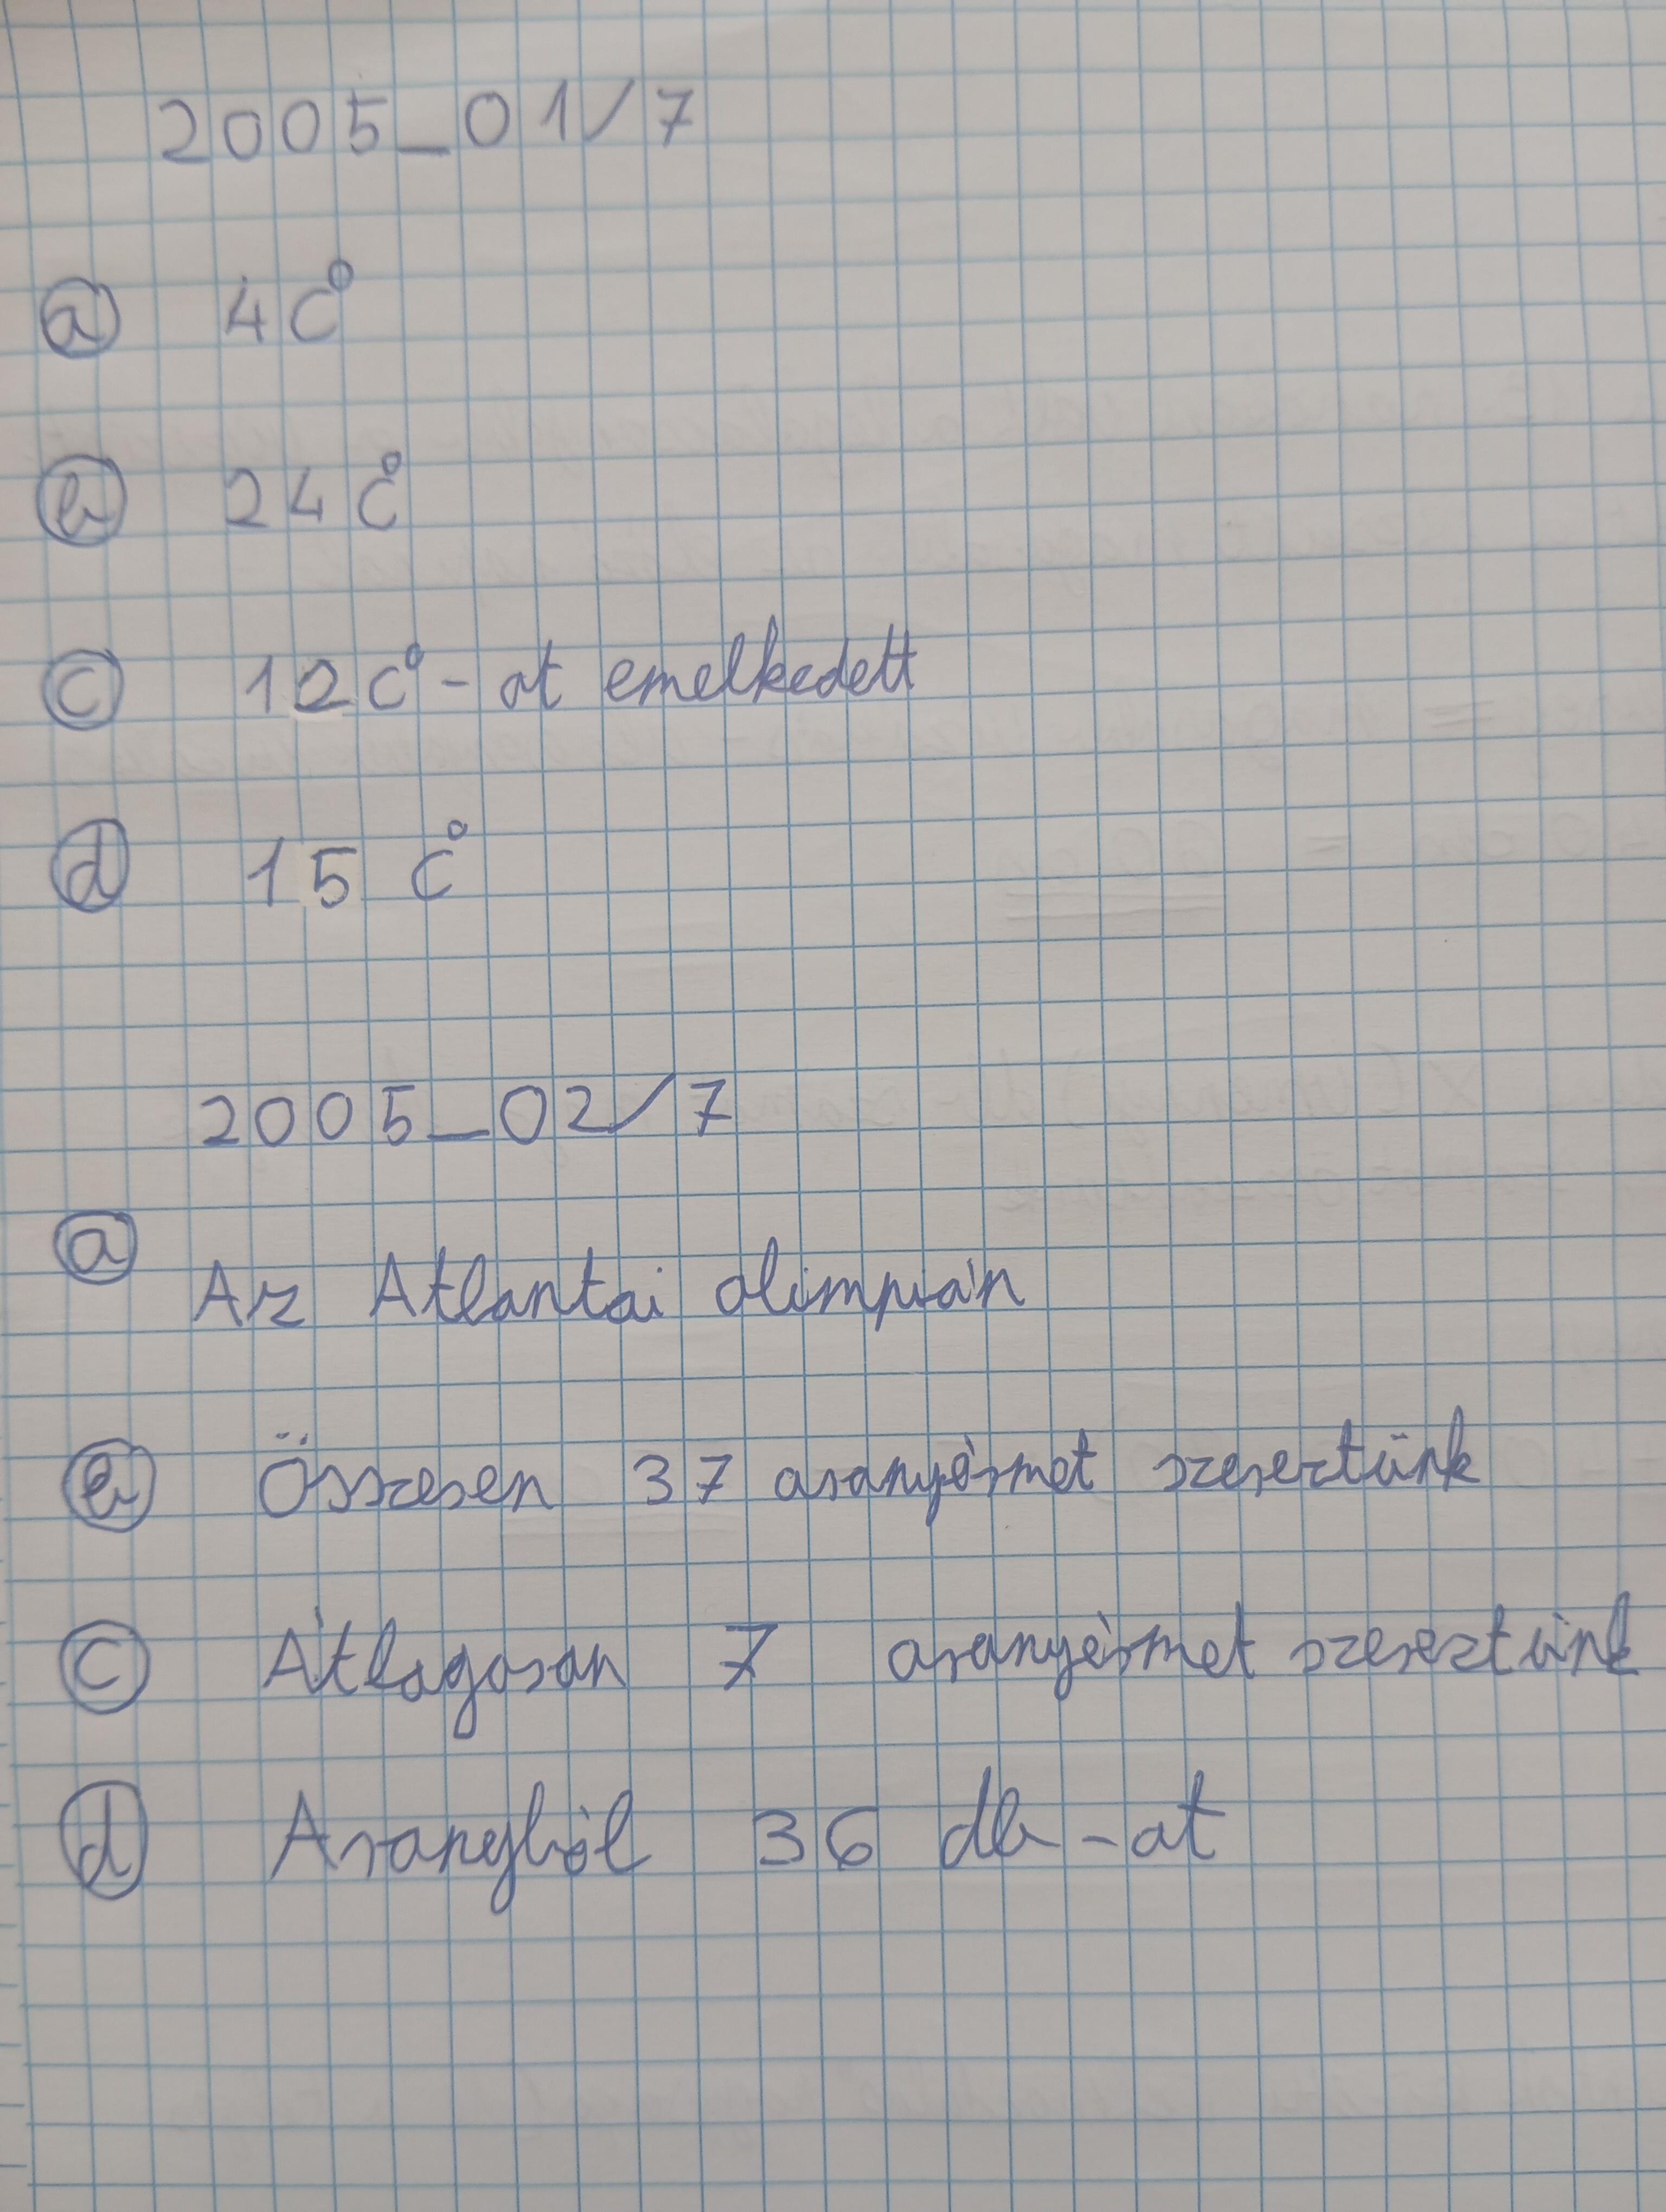 2005_01/7
a 4 C°
b 24 C°
c 12 C°-at emelkedett
d 15 C°
2005_02/7
a
Az Atlantai olimpián
b Összesen 37 aranyérmet szereztünk
c Átlagosan 7 aranyérmet szereztünk
d Aranyból 36 db-at